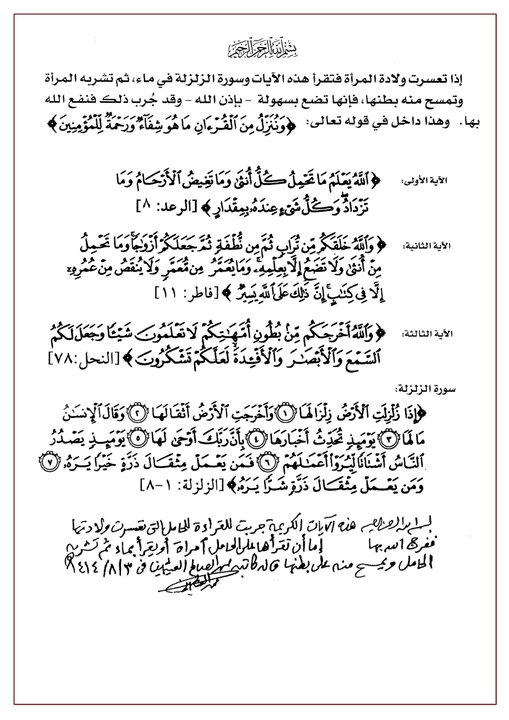 بسم الله الرحمن الرحيم
إذا تعسرت ولادة المرأة فتقرأ هذه الآيات وسورة الزلزلة في ماء، ثم تشربه المرأة
وتمسح منه بطنها، فإنها تضع بسهولة - بإذن الله - وقد جُرب ذلك فنفع الله
بها. وهذا داخل في قوله تعالى: ﴿وَنُنَزِّلُ مِنَ الْقُرْءَانِ مَا هُوَ شِفَآءٌ وَرَحْمَةٌ لِّلْمُؤْمِنِينَ﴾
الآية الأولى: ﴿اللَّهُ يَعْلَمُ مَا تَحْمِلُ كُلُّ أُنثَىٰ وَمَا تَغِيضُ الْأَرْحَامُ وَمَا
تَزْدَادُ وَكُلُّ شَيْءٍ عِندَهُ بِمِقْدَارٍ﴾ [الرعد: ٨]
الآية الثانية: ﴿وَاللَّهُ خَلَقَكُم مِّن تُرَابٍ ثُمَّ مِن نُّطْفَةٍ ثُمَّ جَعَلَكُمْ أَزْوَٰجًا وَمَا تَحْمِلُ
مِنْ أُنثَىٰ وَلَا تَضَعُ إِلَّا بِعِلْمِهِ وَمَا يُعَمَّرُ مِن مُّعَمَّرٍ وَلَا يُنقَصُ مِنْ عُمُرِهِ
إِلَّا فِي كِتَٰبٍ إِنَّ ذَٰلِكَ عَلَى اللَّهِ يَسِيرٌ﴾ [فاطر: ١١]
الآية الثالثة: ﴿وَاللَّهُ أَخْرَجَكُم مِّنْ بُطُونِ أُمَّهَٰتِكُمْ لَا تَعْلَمُونَ شَيْئًا وَجَعَلَ لَكُمُ
السَّمْعَ وَالْأَبْصَٰرَ وَالْأَفْئِدَةَ لَعَلَّكُمْ تَشْكُرُونَ﴾ [النحل: ٧٨]
سورة الزلزلة:
﴿إِذَا زُلْزِلَتِ الْأَرْضُ زِلْزَالَهَا ١ وَأَخْرَجَتِ الْأَرْضُ أَثْقَالَهَا ٢ وَقَالَ الْإِنسَٰنُ
مَا لَهَا ٣ يَوْمَئِذٍ تُحَدِّثُ أَخْبَارَهَا ٤ بِأَنَّ رَبَّكَ أَوْحَىٰ لَهَا ٥ يَوْمَئِذٍ يَصْدُرُ
النَّاسُ أَشْتَاتًا لِّيُرَوْا أَعْمَٰلَهُمْ ٦ فَمَن يَعْمَلْ مِثْقَالَ ذَرَّةٍ خَيْرًا يَرَهُ ٧
وَمَن يَعْمَلْ مِثْقَالَ ذَرَّةٍ شَرًّا يَرَهُ﴾ [الزلزلة: ١-٨]
بسم الله الرحمن الرحيم هذه الآيات الكريمة جربت للقراءة للحامل التي تعسرت ولادتها
ففرج الله بها إما أن تقرأها على الحامل امرأة أو يقرأ بماء ثم تشربه
الحامل ويمسح منه على بطنها قاله كاتبه محمد الصالح العثيمين في ١٤١٤/٨/٣